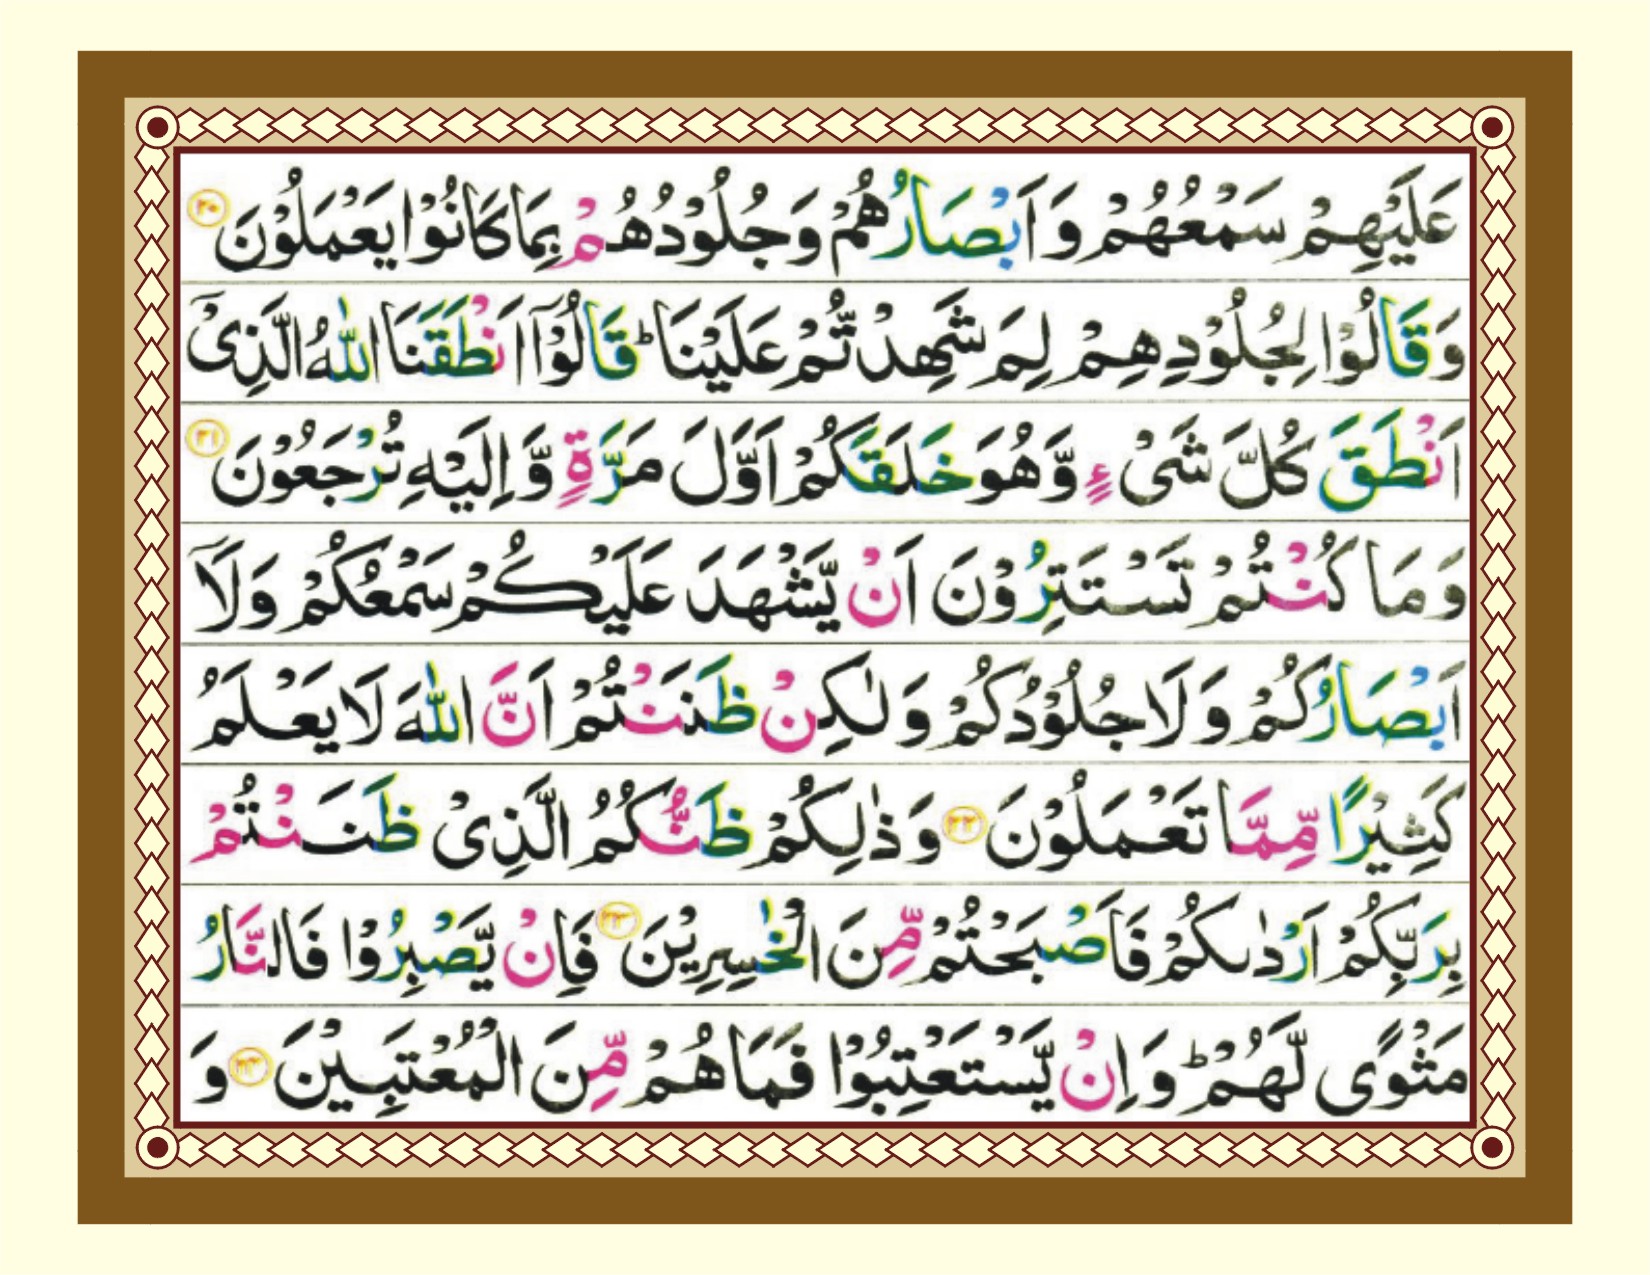 عَلَيْهِمْ سَمْعُهُمْ وَ اَبْصَارُهُمْ وَ جُلُوْدُهُمْ بِمَا كَانُوْا يَعْمَلُوْنَ ۲۰
وَ قَالُوْا لِجُلُوْدِهِمْ لِمَ شَهِدْتُّمْ عَلَيْنَا ؕ قَالُوْۤا اَنْطَقَنَا اللّٰهُ الَّذِیْۤ
اَنْطَقَ كُلَّ شَیْءٍ وَّ هُوَ خَلَقَكُمْ اَوَّلَ مَرَّةٍ وَّ اِلَيْهِ تُرْجَعُوْنَ ۲۱
وَ مَا كُنْتُمْ تَسْتَتِرُوْنَ اَنْ يَّشْهَدَ عَلَيْكُمْ سَمْعُكُمْ وَ لَاۤ
اَبْصَارُكُمْ وَ لَا جُلُوْدُكُمْ وَ لٰكِنْ ظَنَنْتُمْ اَنَّ اللّٰهَ لَا يَعْلَمُ
كَثِيْرًا مِّمَّا تَعْمَلُوْنَ ۲۲ وَ ذٰلِكُمْ ظَنُّكُمُ الَّذِیْ ظَنَنْتُمْ
بِرَبِّكُمْ اَرْدٰىكُمْ فَاَصْبَحْتُمْ مِّنَ الْخٰسِرِيْنَ ۲۳ فَاِنْ يَّصْبِرُوْا فَالنَّارُ
مَثْوًى لَّهُمْ ؕ وَ اِنْ يَّسْتَعْتِبُوْا فَمَا هُمْ مِّنَ الْمُعْتَبِيْنَ ۲۴ وَ